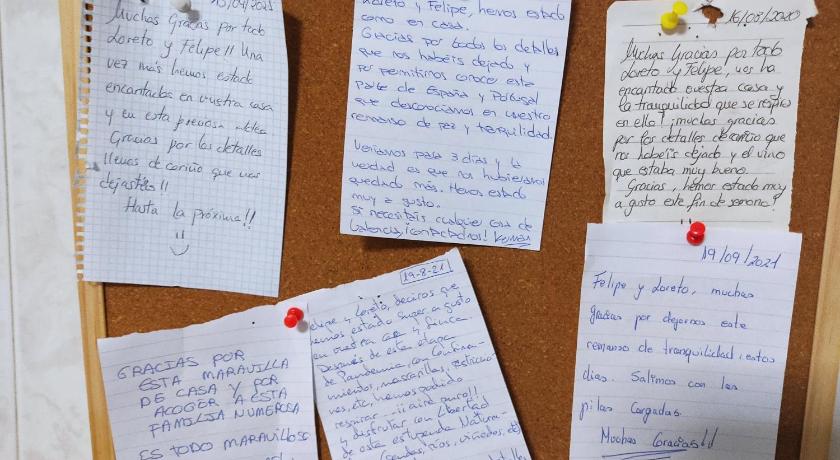 15/04/2023
Muchas Gracias por todo
Loreto y Felipe!! Una
vez más hemos estado
encantados en vuestra casa
y en esta preciosa aldea
Gracias por los detalles
llenos de cariño que nos
dejasteis!!
Hasta la próxima!!
Loreto y Felipe, hemos estado
como en casa.
Gracias por todos los detalles
que nos habéis dejado y
por permitirnos conocer esta
parte de España y Portugal
que desconocíamos en vuestro
remanso de paz y tranquilidad.
Veníamos para 3 días y la
verdad es que nos hubiéramos
quedado más. Hemos estado
muy a gusto.
Si necesitáis cualquier cosa de
Valencia, ¡contactadnos!
16/08/2020
Muchas Gracias por todo
Loreto y Felipe, nos ha
encantado vuestra casa y
la tranquilidad que se respira
en ella! ¡muchas gracias
por los detalles de cariño que
nos habéis dejado y el vino
que estaba muy bueno.
Gracias, hemos estado muy
a gusto este fin de semana!
GRACIAS POR
ESTA MARAVILLA
DE CASA Y POR
ACOGER A ESTA
FAMILIA NUMEROSA
ES TODO MARAVILLOSO
19-8-21
Felipe y Loreto, deciros que
hemos estado super a gusto
en vuestra casa y finca.
Después de esta etapa
de Pandemia, con Confina-
mientos, mascarillas, restriccio-
nes, etc, hemos podido
respirar ...¡¡aire puro!!
y disfrutar con libertad
de esta estupenda Natura-
(sendas, ríos, viñedos, etc)
19/09/2021
Felipe y Loreto, muchas
gracias por dejarnos este
remanso de tranquilidad estos
días. Salimos con las
pilas cargadas.
Muchas Gracias!!